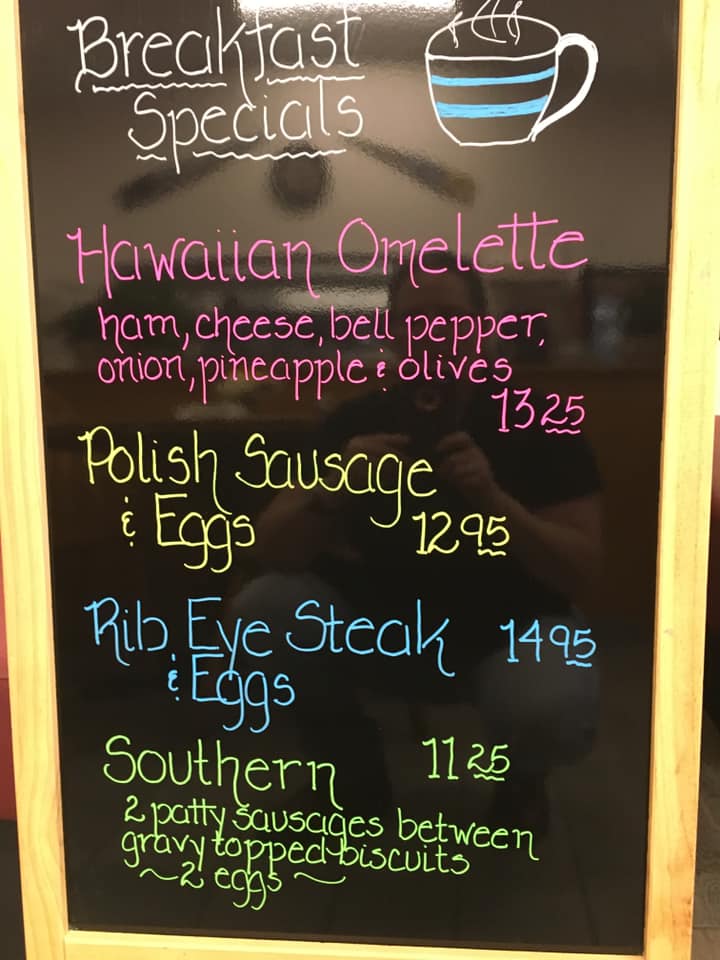 Breakfast
Specials
Hawaiian Omelette
ham, cheese, bell pepper,
onion, pineapple & olives
13 25
Polish Sausage
& Eggs 12 95
Rib Eye Steak 14 95
& Eggs
Southern 11 25
2 patty sausages between
gravy topped biscuits
~2 eggs~